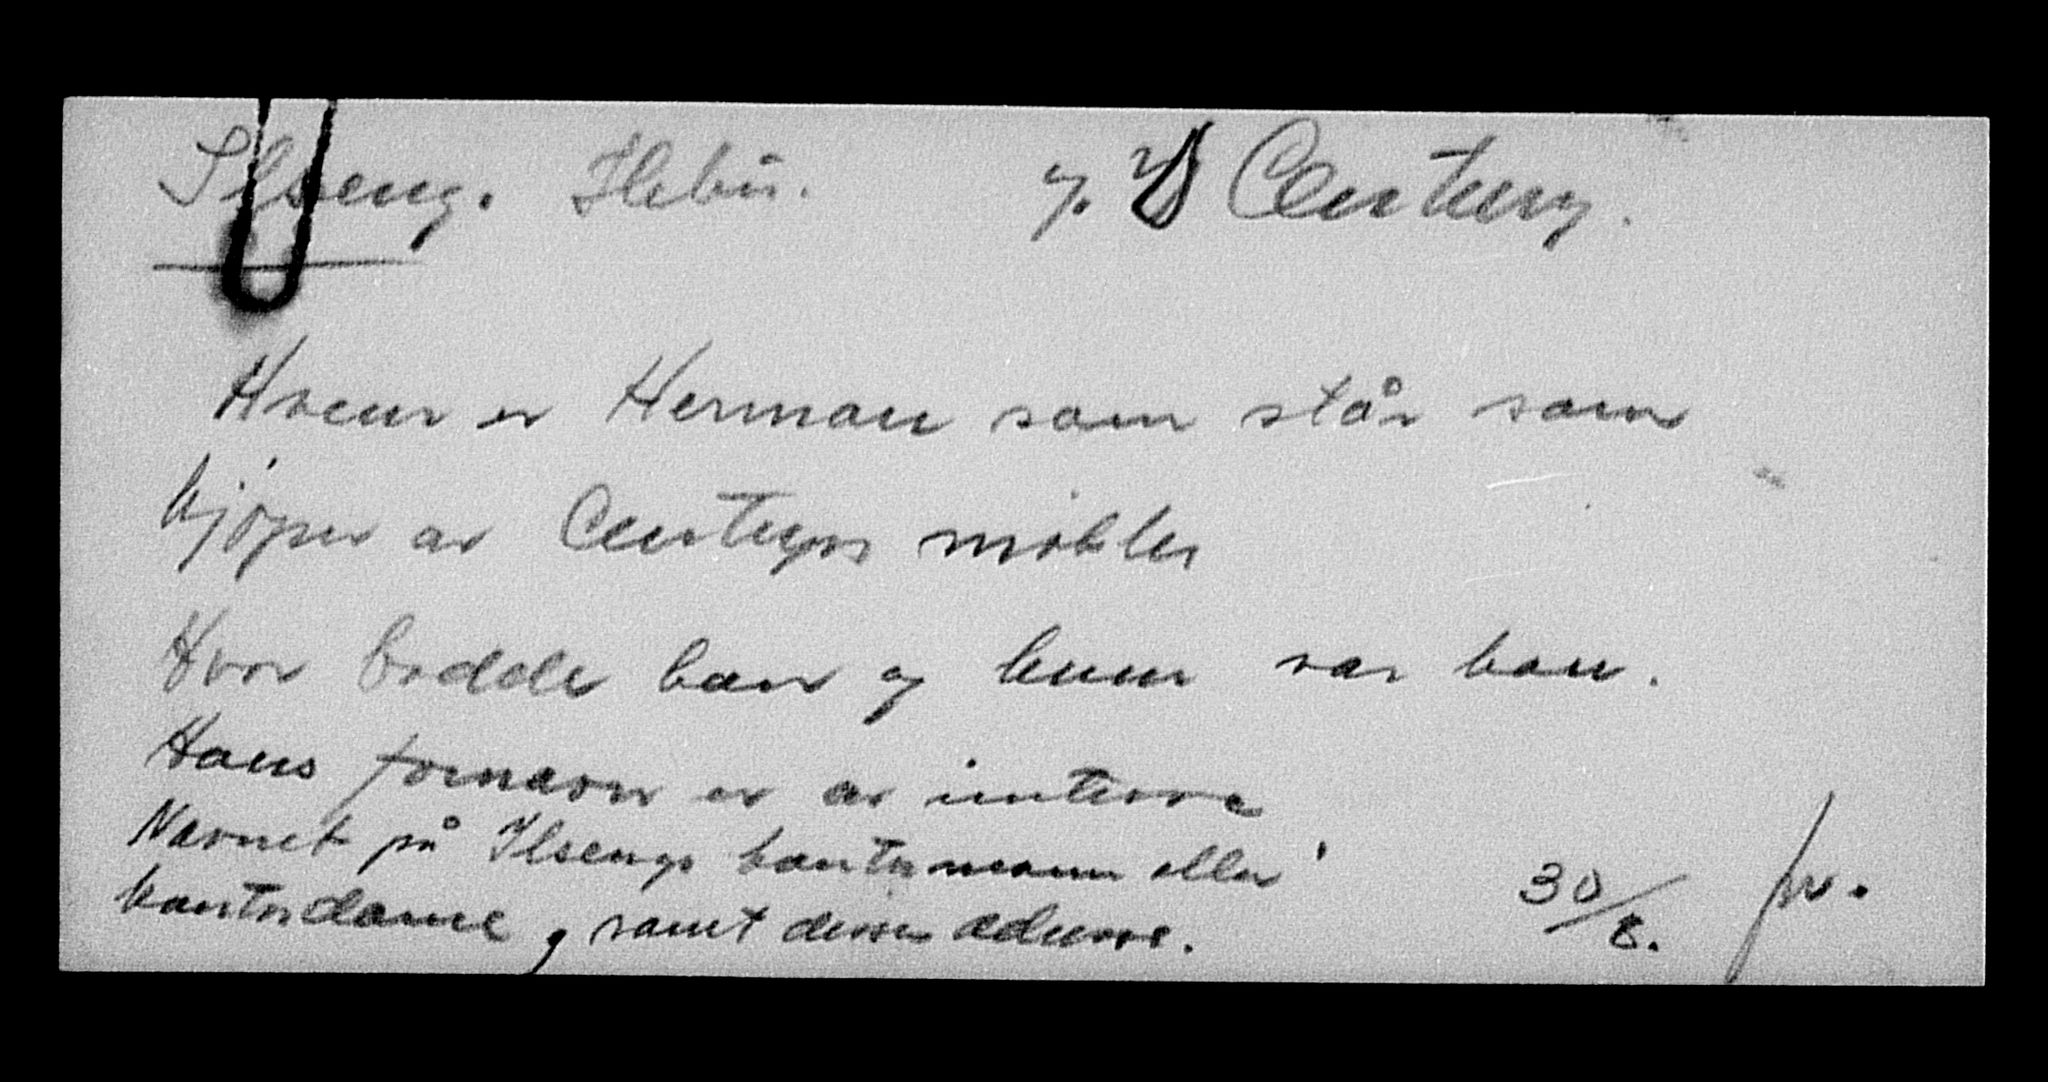 Ilseng. Ilebu. og. Century.
Hvem er Herman som står som
kjøper av Centurys møbler
Hvor bodde han og hvem var han.
Hans fornavn er av interesse
Navnet på Ilsengs kontormann eller
kontordame, samt deres adresse.
30/8.